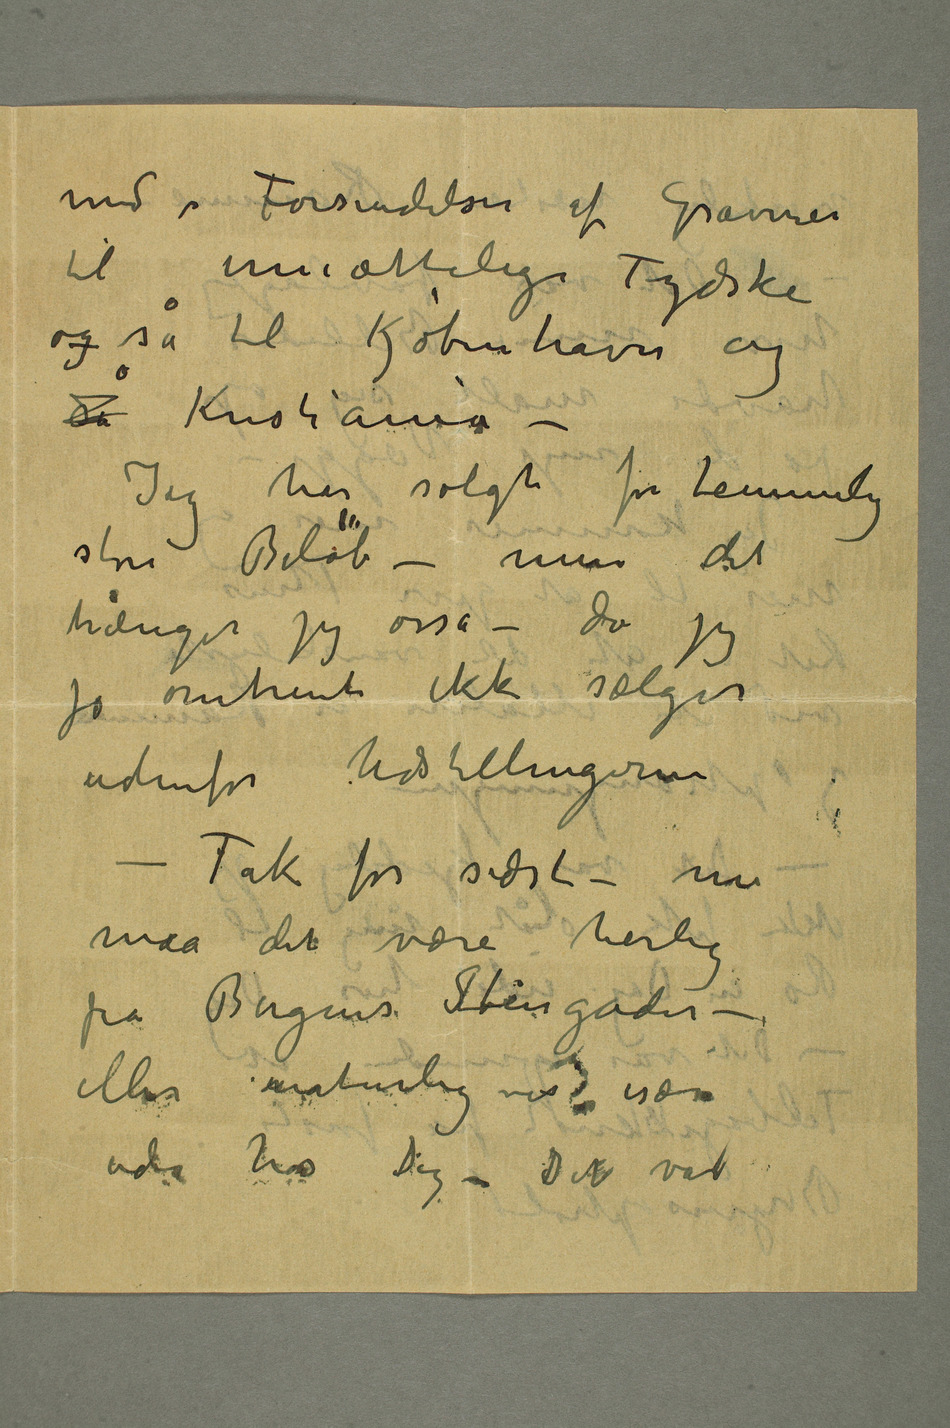 med Forsendelser af Gravurer
til umættelige Tydske
og så til Kjøbenhavn og
så Kristiania –
Jeg har solgt for temmelig
store Beløb – men det
trænger jeg osså – da jeg
jo omtrent ikke sælger
udenfor Udstillingerne
– Tak for sidst – nu
maa det være herlig
fra Bergens Stengader –
eller naturligvis især
ude hos Dig – Det var